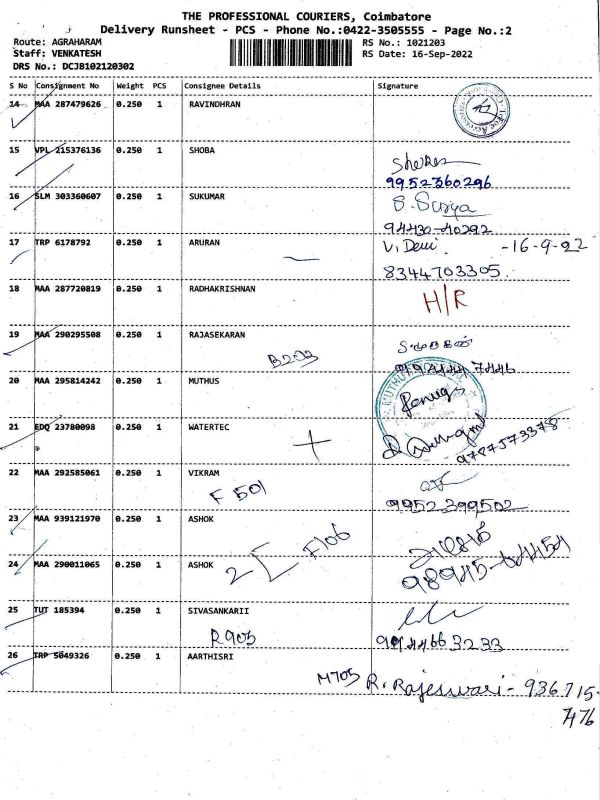 THE PROFESSIONAL COURIERS, Coimbatore
Delivery Runsheet - PCS - Phone No.:0422-3505555 - Page No.:2
Route: AGRAHARAM
RS No.: 1021203
Staff: VENKATESH
RS Date: 16-Sep-2022
DRS No.: DCJB102120302
S No Consignment No Weight PCS Consignee Details Signature
14 MAA 287479626 0.250 1 RAVINDHRAN
15 VPL 215376136 0.250 1 SHOBA
9952360296
16 SLM 303360607 0.250 1 SUKUMAR S. Surya
94430-40292
17 TRP 6178792 0.250 1 ARURAN V. Devi -16-9-22
8344703305
18 MAA 287720819 0.250 1 RADHAKRISHNAN H/R
19 MAA 290295508 0.250 1 RAJASEKARAN
B203
20 MAA 295814242 0.250 1 MUTHUS
21 EDQ 23780098 0.250 1 WATERTEC
9787573378
22 MAA 292585061 0.250 1 VIKRAM
F 501 9952399502
23 MAA 939121970 0.250 1 ASHOK
F106
24 MAA 290011065 0.250 1 ASHOK 2
25 TUT 185394 0.250 1 SIVASANKARII
R905 9944663233
26 TRP 5049326 0.250 1 AARTHISRI
M705 R. Rajeswari - 936715-
476